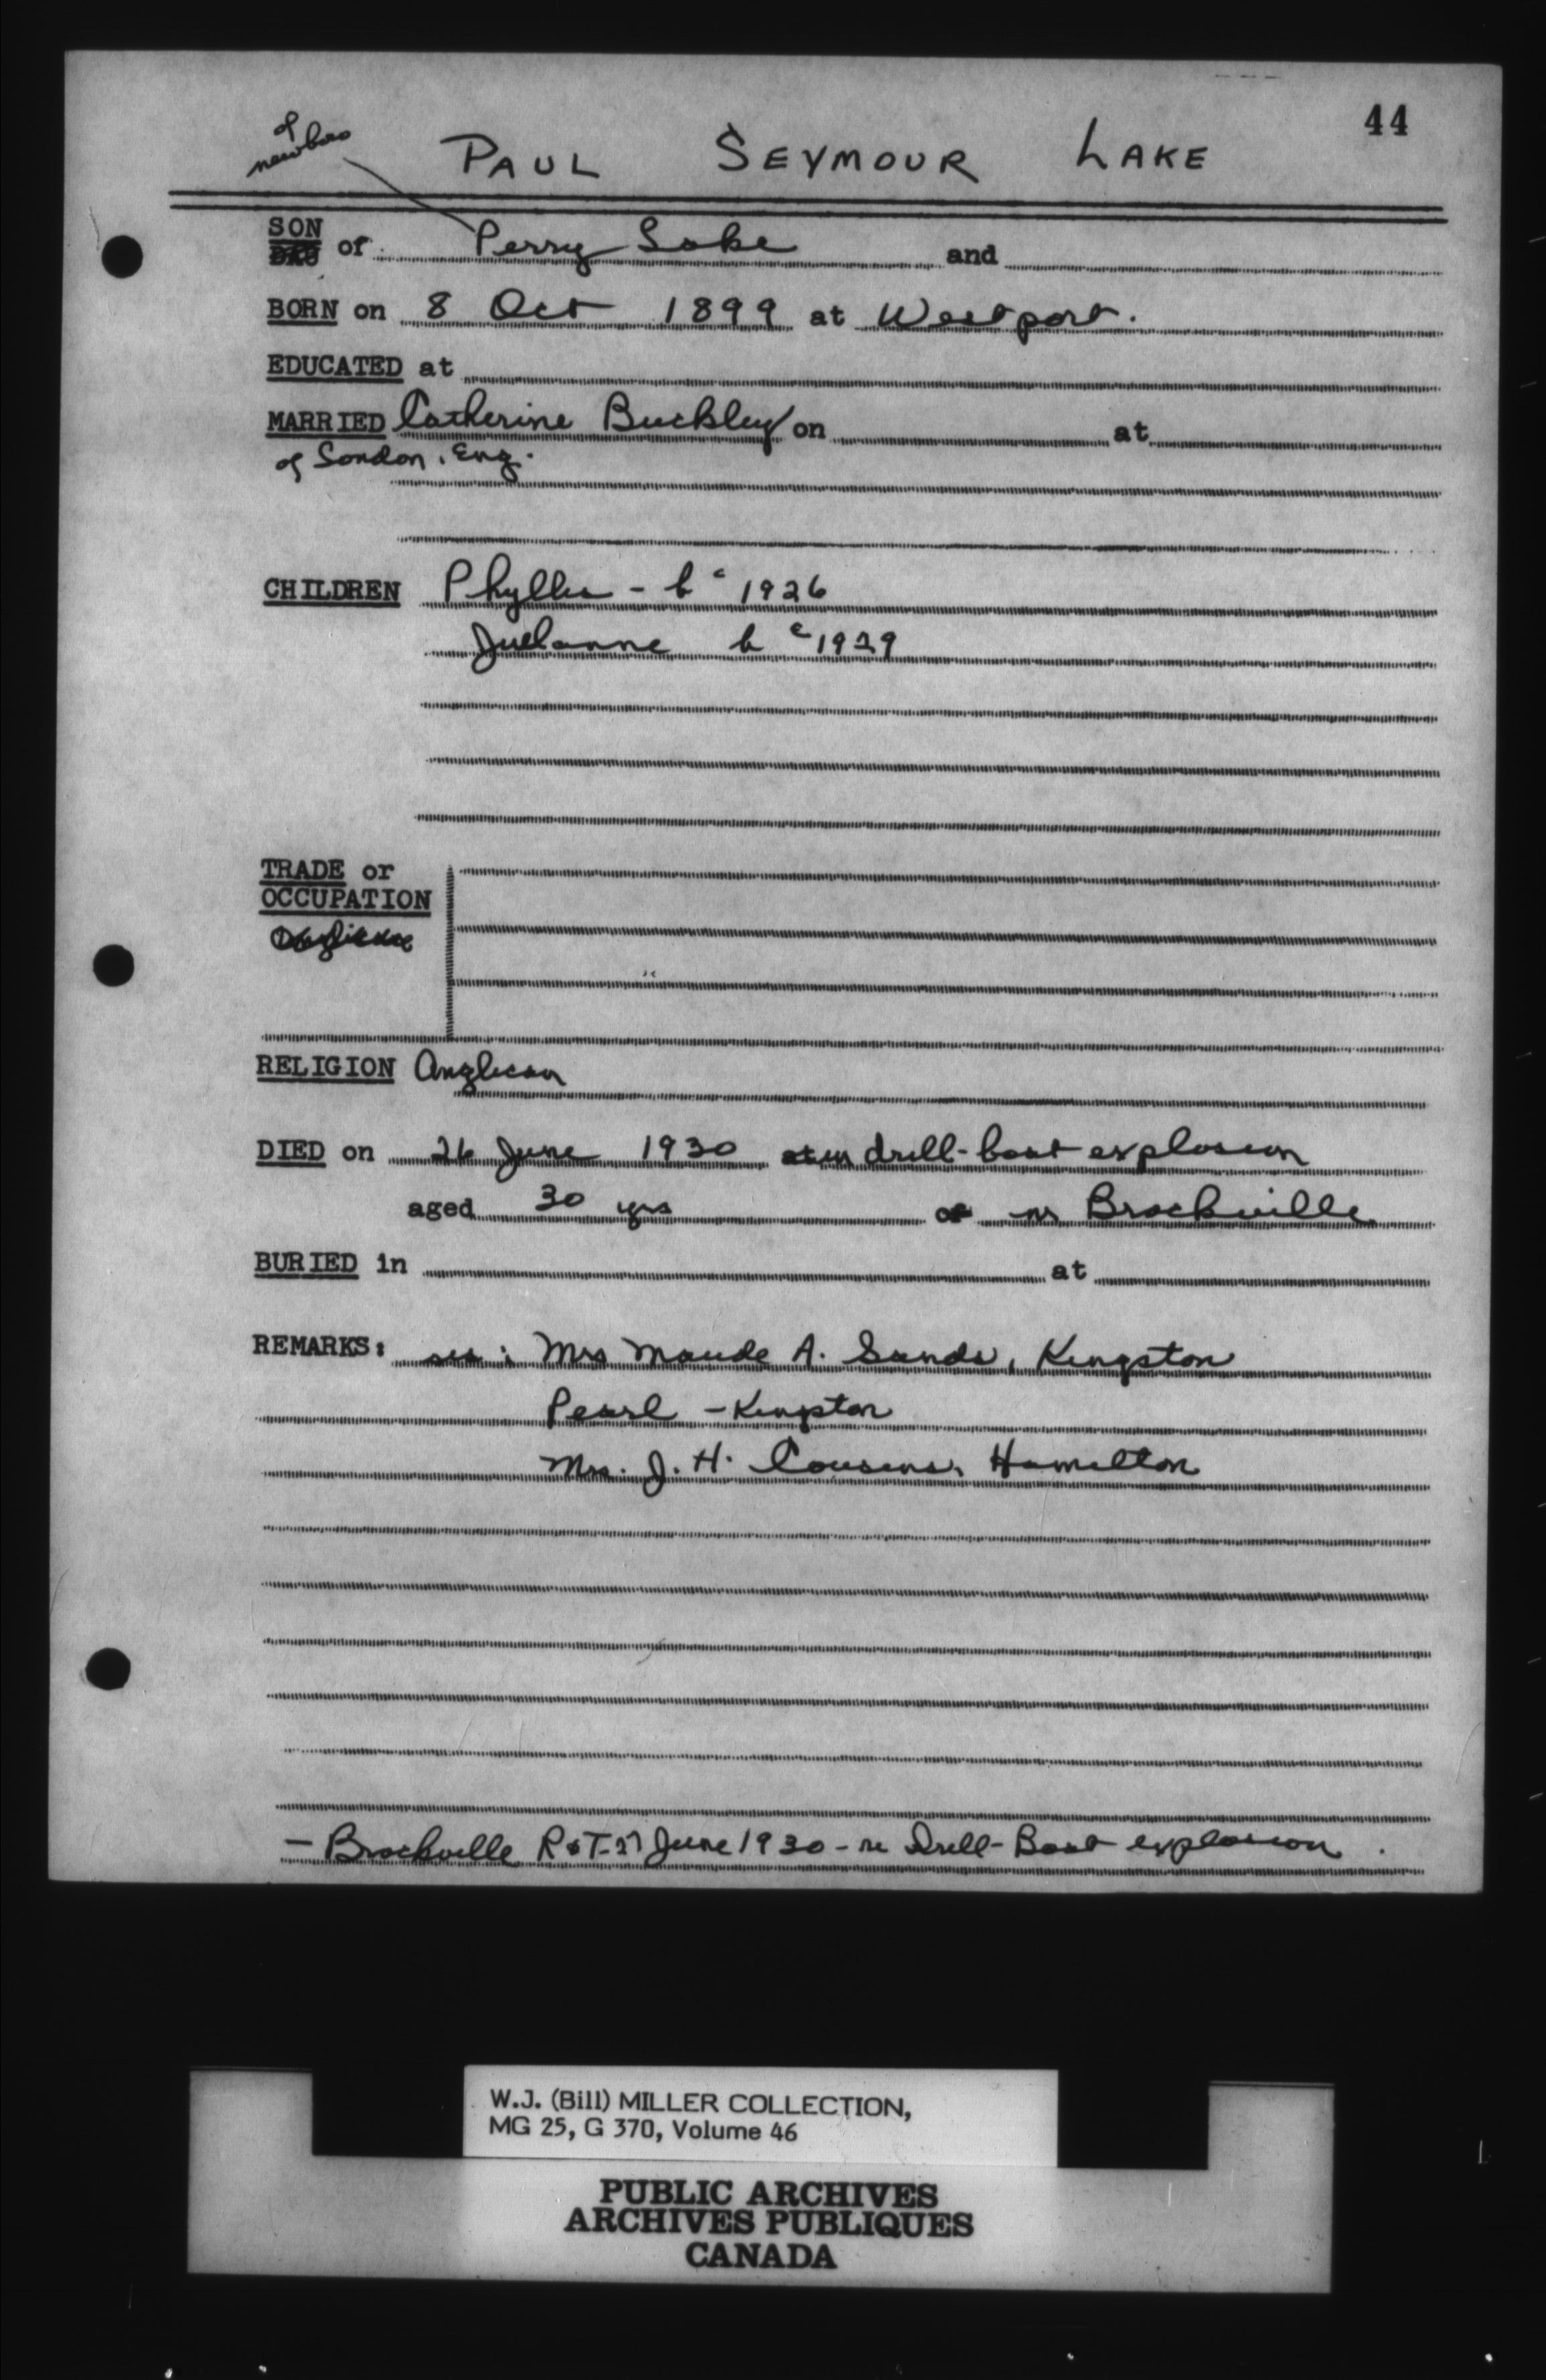 44
of newboro
PAUL SEYMOUR LAKE
SON of Perry Lake and
BORN on 8 Oct 1899 at Westport.
EDUCATED at
MARRIED Catherine Buckley on at
of London, Eng.
CHILDREN Phyllis - b c 1926
Juelanne b c 1929
TRADE or
OCCUPATION
RELIGION Anglican
DIED on 26 June 1930 in drill-boat explosion
aged 30 yrs nr Brockville
BURIED in at
REMARKS: sis: Mrs Maude A. Sands, Kingston
Pearl - Kingston
Mrs. J. H. Cousens, Hamilton
- Brockville R&T-27 June 1930 - re Drill-Boat explosion.
W.J. (Bill) MILLER COLLECTION,
MG 25, G 370, Volume 46
PUBLIC ARCHIVES
ARCHIVES PUBLIQUES
CANADA